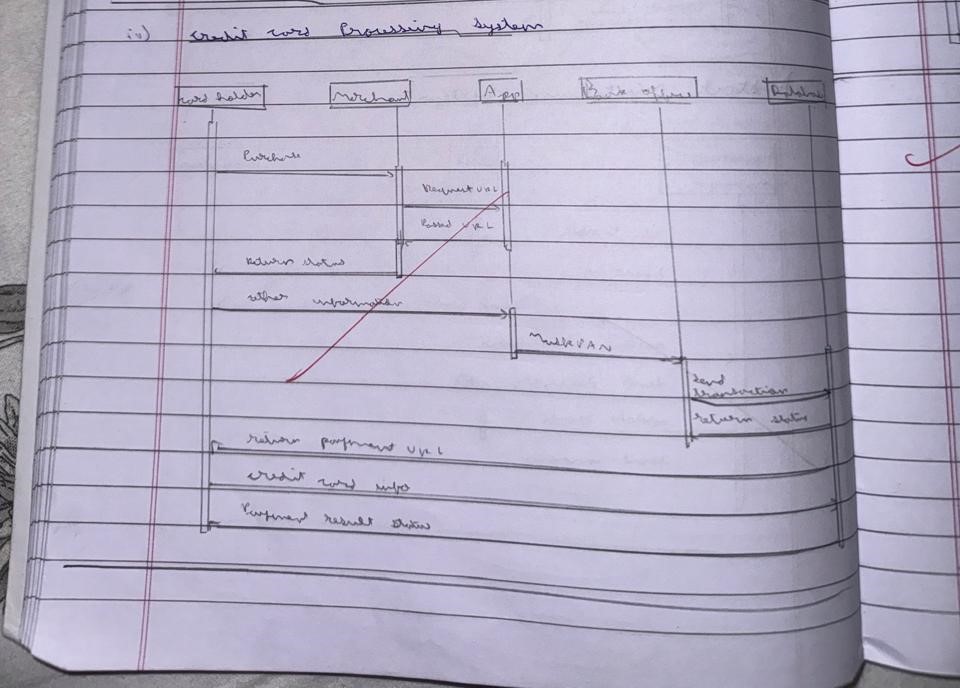 iv) Credit card Processing System
Card holder Merchant App Bank office Database
Purchase
Request URL
Passed URL
Return status
other information
Mask PAN
Send
transaction
return status
return payment URL
credit card info
Payment result status